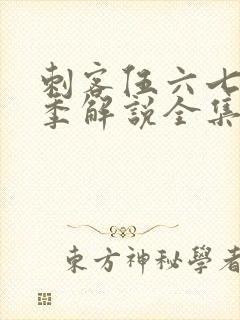 刺客伍六七
季解說全集
東方神秘學者